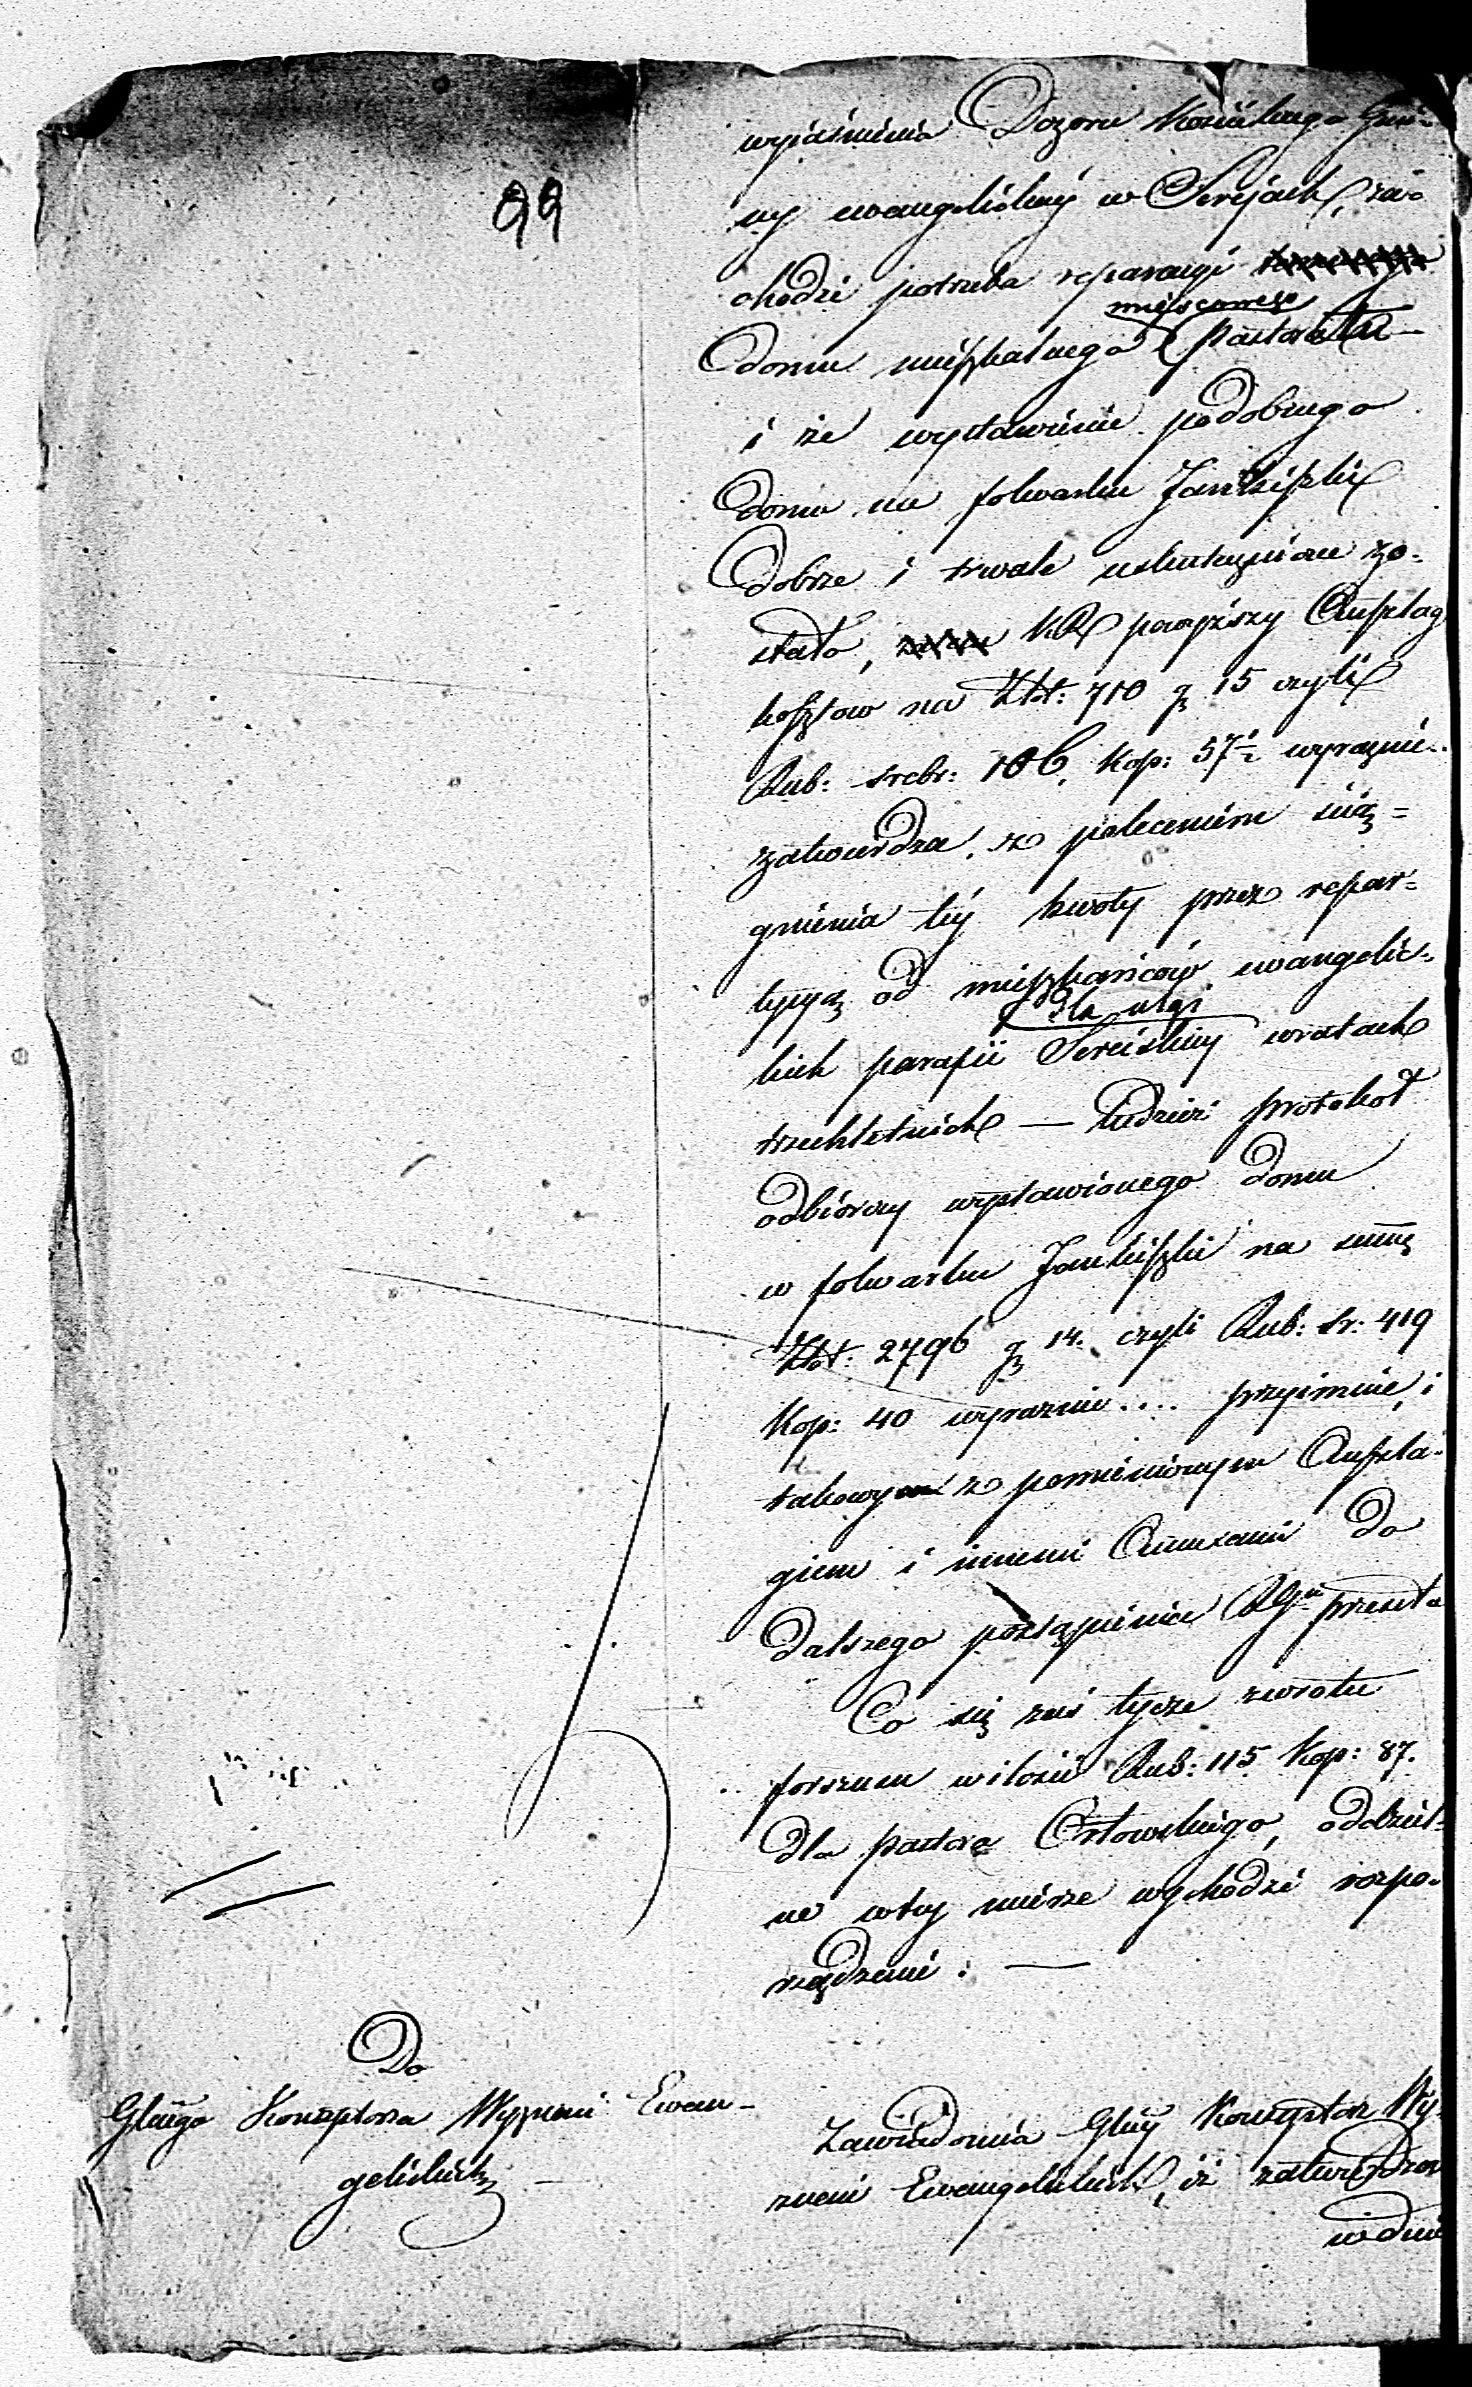 99
wyiaśnienia Dozoru Kościelnego Gmi-
ny ewangelickiéy w Serejach, za-
chodzi potrzeba reparacyi
mieyscowego
domu mieszkalnego Pastora
i że wystawienie podobnego
domu na folwarku Jankiszki
dobrze i trwale uskutecznione zo-
stało, KR powyższy Anszlag
kosztów na Złot: 710 g 15 czyli
Rub: srebr: 106, Kop: 57½ wyraznie..
zatwierdza, z poleceniem ścią=
gnienia téy kwoty przez repar=
tycyą od mieszkańców ewangelic-
dla ulgi
kich parafii Sereiskiey w ratach
trzechletnich — tudzież protokół
odbiorczy wystawionego domu
w folwarku Jankiszki na summę
Złot: 2796 g 14. czyli Rub: sr: 419
Kop: 40 wyraznie .... przyimuie, i
takowy z pomienionym Anszla-
giem i innemi Annexami do
dalszego postąpienia przeséła
Co się zaś tycze zwrotu
forszusu w ilości Rub: 115 Kop: 87.
dla pastora Orłowskiego, oddziel-
ne w tey mierze wychodzi rozpo-
rządzenie. —
Do
Glnego Konsystorza Wyznań Ewan-
gelickich
Zawiadomia Glny Konsystorz Wy-
znań Ewangelickich, iż zatwierdzon